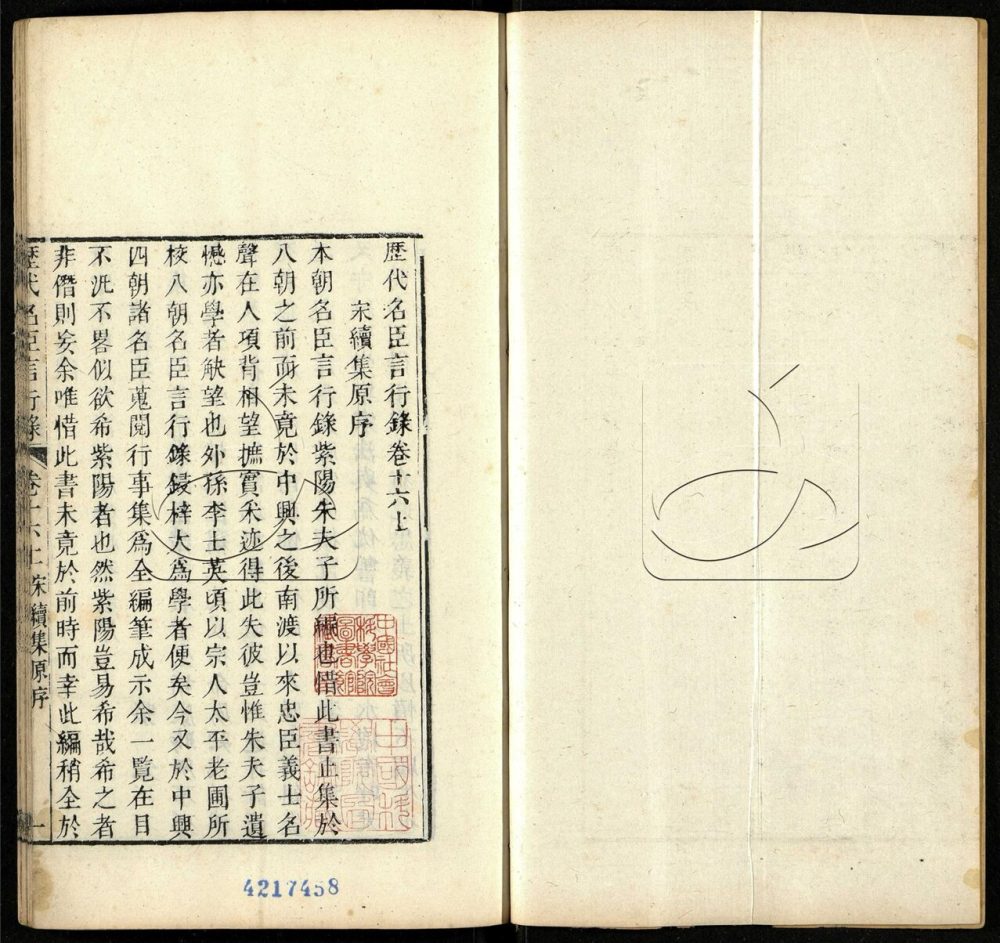 歷代名臣言行錄卷十六上
宋續集原序
本朝名臣言行錄紫陽朱夫子所編也惜此書止集於
八朝之前而未竟於中興之後南渡以來忠臣義士名
聲在人項背相望摭實采迹得此失彼豈惟朱夫子遺
憾亦學者觖望也外孫李士英頃以宗人太平老圃所
校八朝名臣言行錄鋟梓大爲學者便矣今又於中興
四朝諸名臣蒐閱行事集爲全編筆成示余一覽在目
不泛不畧似欲希紫陽者也然紫陽豈易希哉希之者
非僭則妄余唯惜此書未竟於前時而幸此編稍全於
歷代名臣言行錄 卷十六上宋續集原序 一
中國社會
科學院
圖書館
4217458